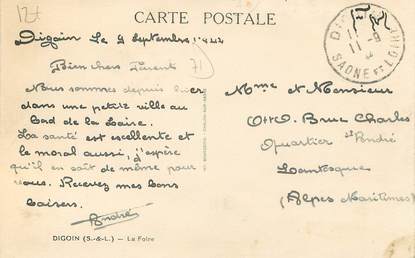 12f
CARTE POSTALE
Digoin Le 9 Septembre 1944
71
Bien chers Parent
Nous sommes depuis hier
dans une petite ville au
Bord de la Loire.
La santé est excellente et
le moral aussi, j'espère
qu'il en soit de même pour
vous. Recevez mes bons
baisers.
André
DIGOIN (S.-&-L.) — La Foire
SAONE ET LOIRE
Mme et Monsieur
Bruc Charles
Quartier St André
Lantosque
(Alpes Maritimes)